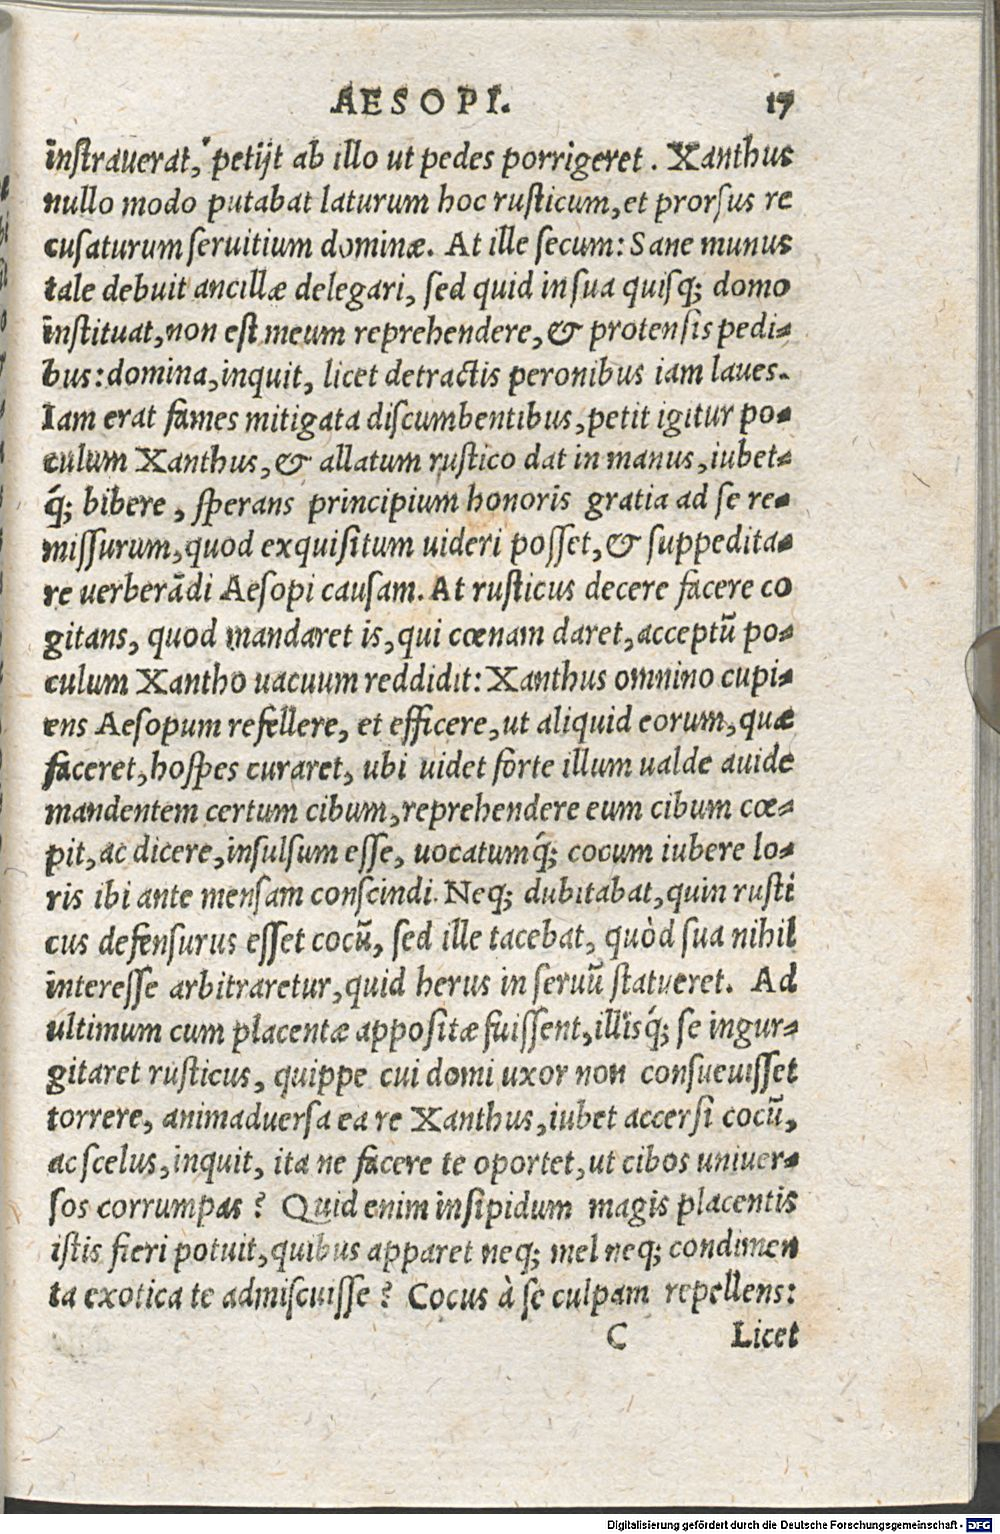 AESOPI. 17
instrauerat, petijt ab illo ut pedes porrigeret. Xanthus
nullo modo putabat laturum hoc rusticum, et prorsus re
cusaturum seruitium dominæ. At ille secum: Sane munus
tale debuit ancillæ delegari, sed quid in sua quisq; domo
instituat, non est meum reprehendere, & protensis pedi-
bus: domina, inquit, licet detractis peronibus iam laues.
Iam erat fames mitigata discumbentibus, petit igitur po-
culum Xanthus, & allatum rustico dat in manus, iubet-
q́; bibere, sperans principium honoris gratia ad se re-
missurum, quod exquisitum uideri posset, & suppedita-
re uerberādi Aesopi causam. At rusticus decere facere co
gitans, quod mandaret is, qui cœnam daret, acceptū po-
culum Xantho uacuum reddidit: Xanthus omnino cupi-
ens Aesopum refellere, et efficere, ut aliquid eorum, quæ
faceret, hospes curaret, ubi uidet forte illum ualde auide
mandentem certum cibum, reprehendere eum cibum cœ-
pit, ac dicere, insulsum esse, uocatumq́; cocum iubere lo-
ris ibi ante mensam conscindi. Neq; dubitabat, quin rusti
cus defensurus esset cocū, sed ille tacebat, quòd sua nihil
interesse arbitraretur, quid herus in seruū statueret. Ad
ultimum cum placentæ appositæ fuissent, illisq́; se ingur-
gitaret rusticus, quippe cui domi uxor non consueuisset
torrere, animaduersa ea re Xanthus, iubet accersi cocū,
ac scelus, inquit, ita ne facere te oportet, ut cibos uniuer-
sos corrumpas? Quid enim insipidum magis placentis
istis fieri potuit, quibus apparet neq; mel neq; condimen
ta exotica te admiscuisse? Cocus à se culpam repellens:
C Licet
Digitalisierung gefördert durch die Deutsche Forschungsgemeinschaft - DFG